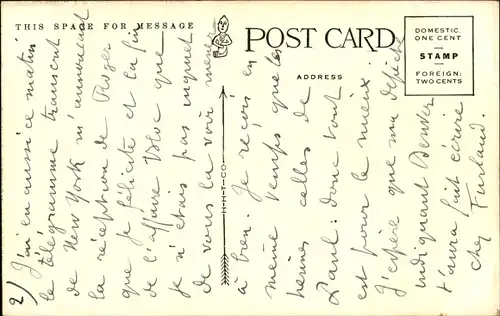 THIS SPACE FOR MESSAGE
POST CARD
ADDRESS
DOMESTIC
ONE CENT
STAMP
FOREIGN:
TWO CENTS
2) J'ai eu aussi ce matin
le télégramme transmis
de New York m'annonçant
la réception de
que je félicite et la fin
de l'affaire Bloc que
je n'étais pas inquiet
de vous la voir mener
à bien. Je reçois en
même temps que les
tiennes celles de
Paul : donc tout
est pour le mieux.
J'espère que ma dépêche
indiquant Denver
t'aura fait écrire
chez Furland.